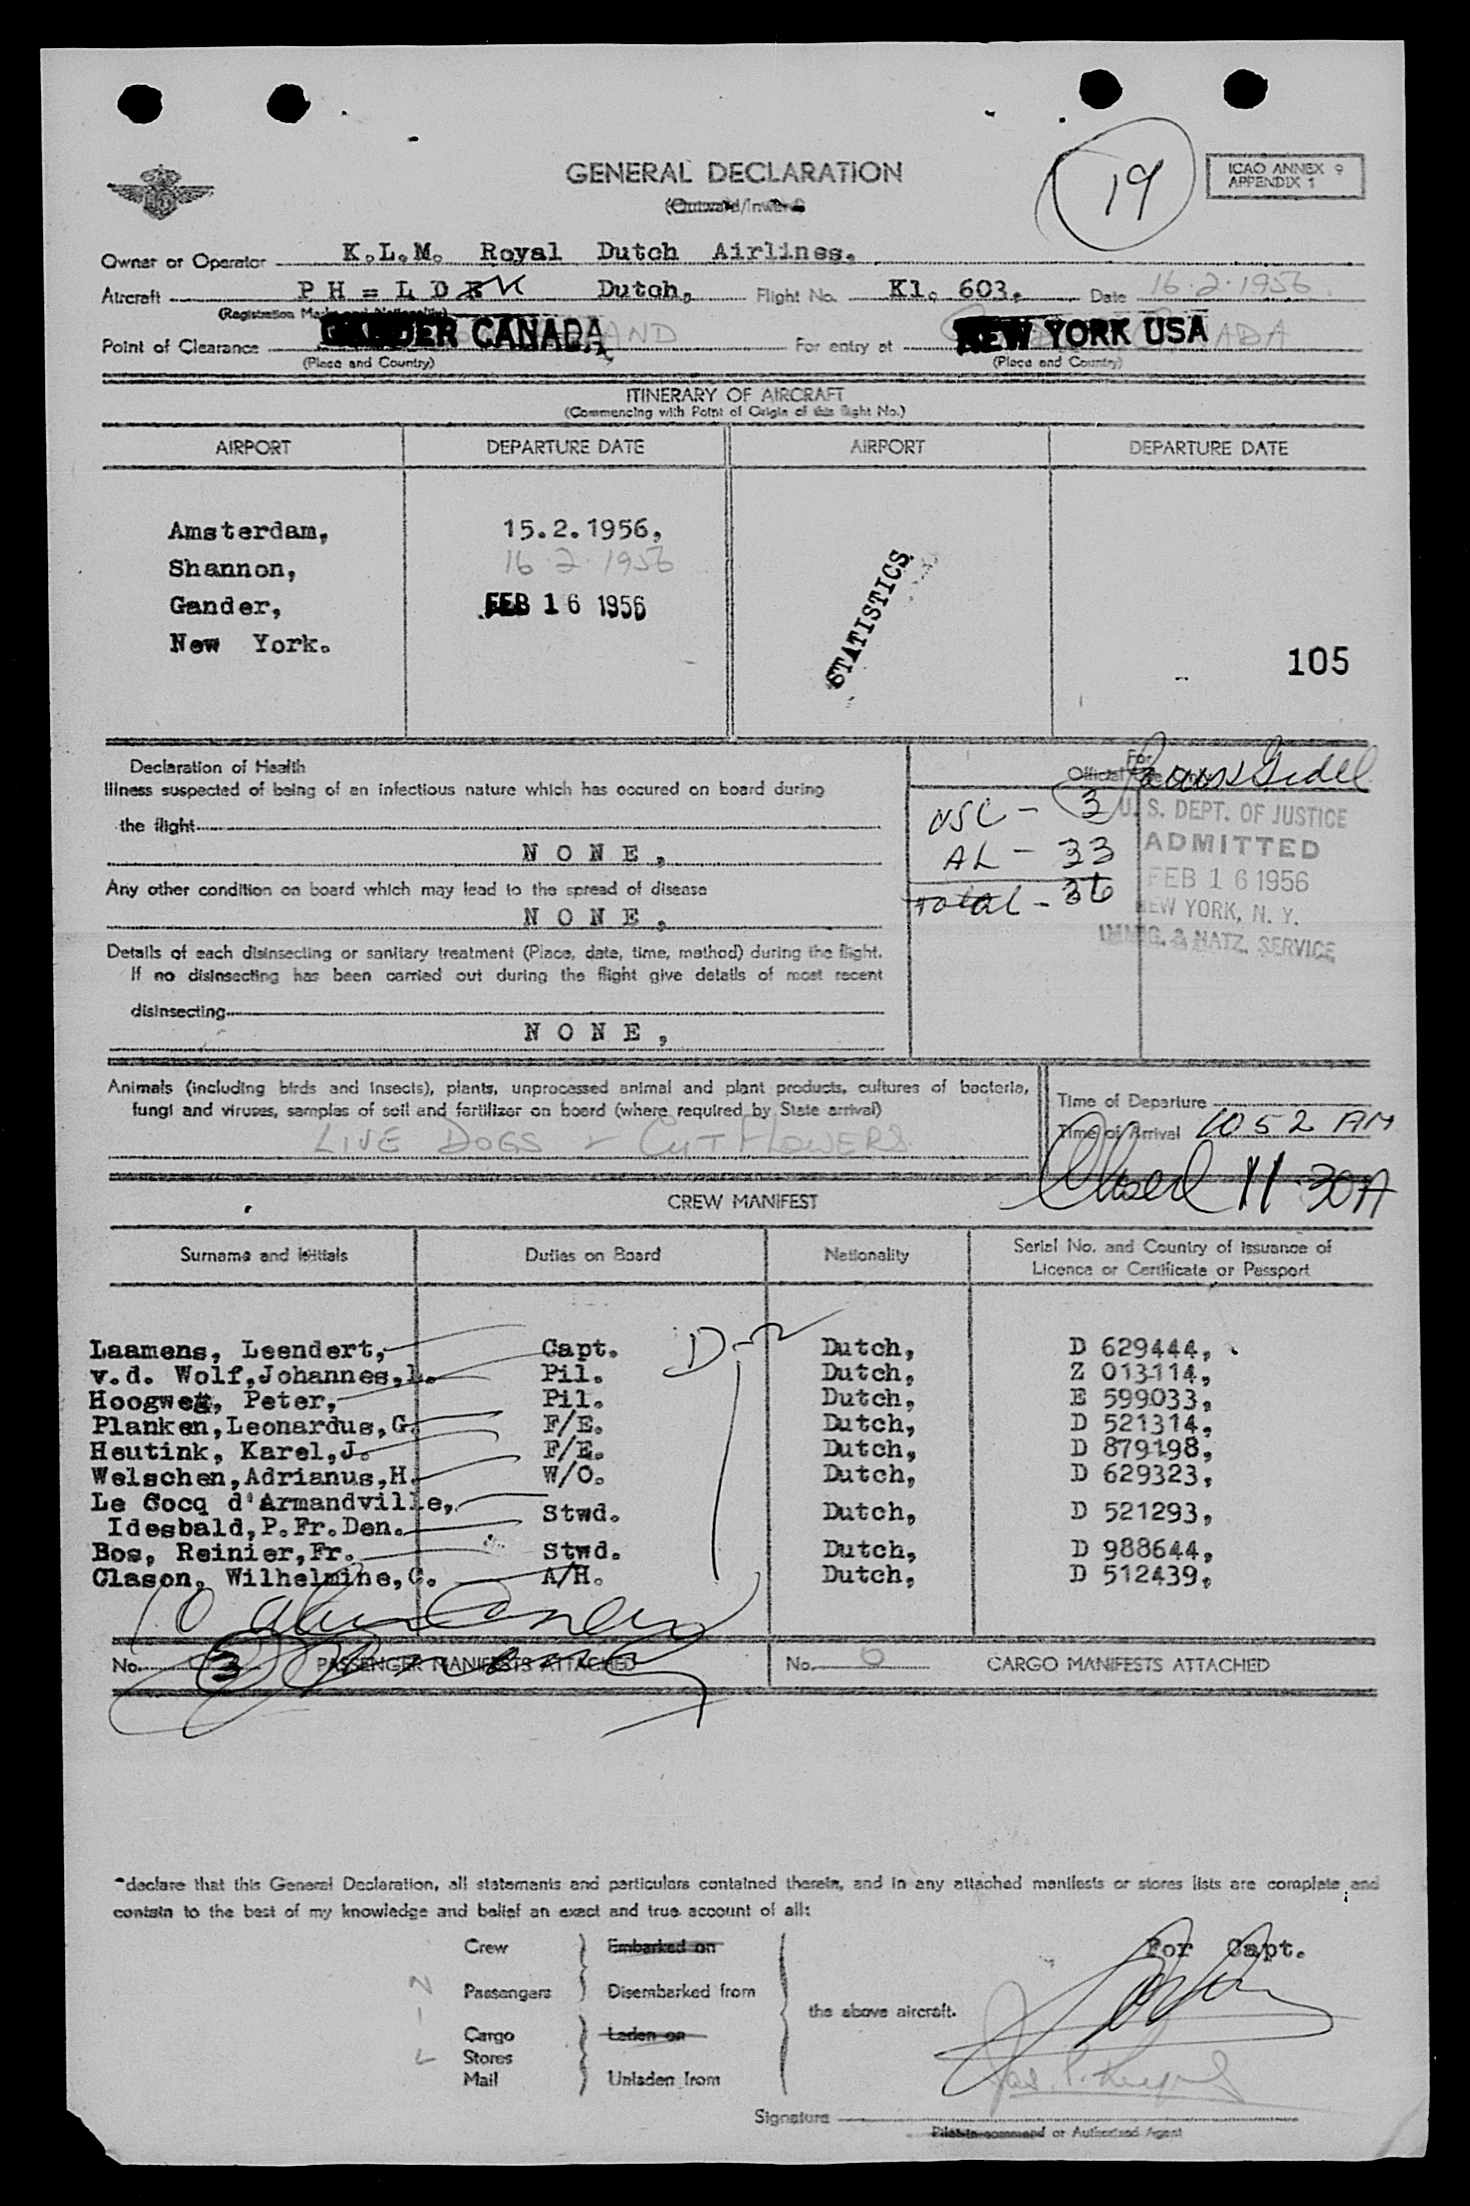 GENERAL DECLARATION
(Outward/Inward)
19
ICAO ANNEX 9
APPENDIX 1
Owner or Operator K.L.M. Royal Dutch Airlines.
Aircraft PH = LDK Dutch, Flight No. Kl. 603, Date 16-2-1956
(Registration Marks and Nationality)
Point of Clearance GANDER CANADA For entry at NEW YORK USA
(Place and Country) (Place and Country)
ITINERARY OF AIRCRAFT
(Commencing with Point of Origin of this flight No.)
AIRPORT DEPARTURE DATE AIRPORT DEPARTURE DATE
Amsterdam, 15.2.1956,
Shannon, 16-2-1956
Gander, FEB 16 1956
New York.
STATISTICS
105
Declaration of Health
For
Official Use
Illness suspected of being of an infectious nature which has occured on board during
the flight
N O N E ,
Any other condition on board which may lead to the spread of disease
N O N E ,
Details of each disinsecting or sanitary treatment (Place, date, time, method) during the flight.
If no disinsecting has been carried out during the flight give details of most recent
disinsecting
N O N E ,
USC - 3
AL - 33
Total - 36
U. S. DEPT. OF JUSTICE
ADMITTED
FEB 16 1956
NEW YORK, N. Y.
IMMIG. & NATZ. SERVICE
Animals (including birds and insects), plants, unprocessed animal and plant products, cultures of bacteria,
fungi and viruses, samples of soil and fertilizer on board (where required by State arrival)
LIVE DOGS & CUT FLOWERS
Time of Departure
Time of Arrival 1052 AM
Closed 11.30A
CREW MANIFEST
Surname and initials Duties on Board Nationality Serial No. and Country of issuance of
Licence or Certificate or Passport
Laamens, Leendert, Capt. Dutch, D 629444,
v.d. Wolf,Johannes,L. Pil. Dutch, Z 013114,
Hoogwegt, Peter, Pil. Dutch, E 599033,
Planken,Leonardus,G. F/E. Dutch, D 521314,
Heutink, Karel,J. F/E. Dutch, D 879198,
Welschen,Adrianus,H. W/O. Dutch, D 629323,
Le Cocq d'Armandville,
Idesbald,P.Fr.Den. Stwd. Dutch, D 521293,
Bos, Reinier,Fr. Stwd. Dutch, D 988644,
Clason, Wilhelmine,C. A/H. Dutch, D 512439,
D-2
No. 3 PASSENGER MANIFESTS ATTACHED No. 0 CARGO MANIFESTS ATTACHED
declare that this General Declaration, all statements and particulars contained therein, and in any attached manifests or stores lists are complete and
contain to the best of my knowledge and belief an exact and true account of all:
Crew Embarked on
Passengers Disembarked from
the above aircraft.
Cargo Laden on
Stores
Mail Unladen from
For Capt.
Signature
Pilot-in-command or Authorized Agent